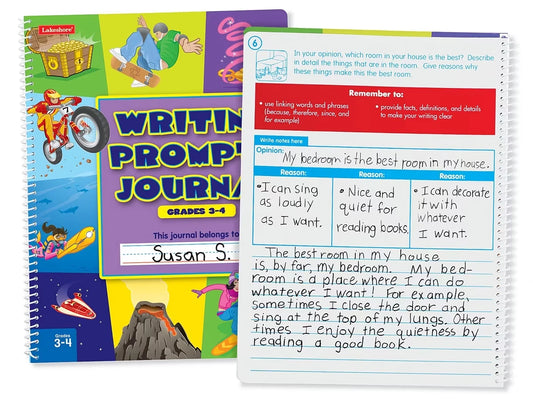 Lakeshore
WRITIN
PROMP
JOURNA
GRADES 3-4
This journal belongs to
Susan S.
Grades
3-4
6
In your opinion, which room in your house is the best? Describe
in detail the things that are in the room. Give reasons why
these things make this the best room.
Remember to:
• use linking words and phrases
(because, therefore, since, and
for example)
• provide facts, definitions, and details
to make your writing clear
Write notes here
Opinion: My bedroom is the best room in my house.
Reason:
Reason:
Reason:
• I can sing
as loudly
as I want.
• Nice and
quiet for
reading books.
• I can decorate
it with
whatever
I want.
The best room in my house
is, by far, my bedroom. My bed-
room is a place where I can do
whatever I want! For example,
sometimes I close the door and
sing at the top of my lungs. Other
times I enjoy the quietness by
reading a good book.